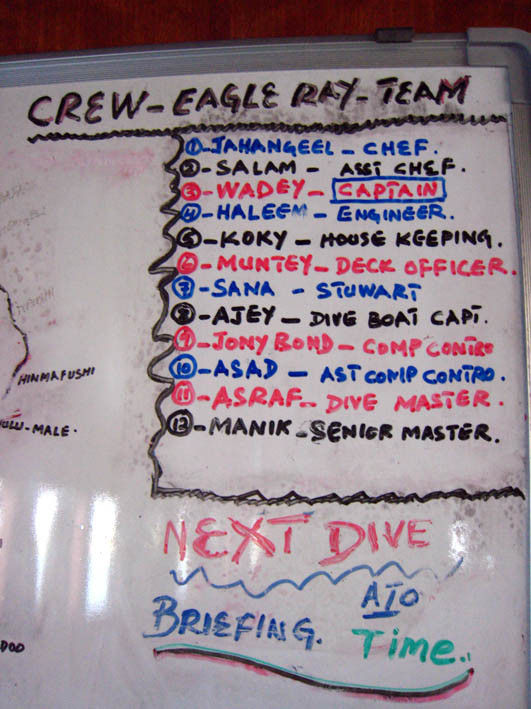 CREW - EAGLE RAY - TEAM
1 - JAHANGEEL - CHEF.
2 - SALAM - ASST CHEF.
3 - WADEY - CAPTAIN
4 - HALEEM - ENGINEER.
5 - KOKY - HOUSE KEEPING.
6 - MUNTEY - DECK OFFICER.
7 - SANA - STUWART
8 - AJEY - DIVE BOAT CAPT.
9 - JONY BOND - COMP CONTRO
10 - ASAD - AST COMP CONTRO.
11 - ASRAF - DIVE MASTER.
12 - MANIK - SENIER MASTER.
HINMAFUSHI
ULU-MALE.
NEXT DIVE
BRIEFING. AIO
Time.
DOO